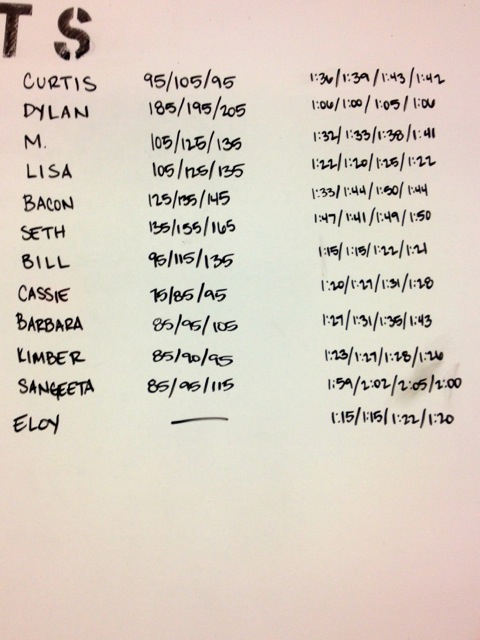 TS
CURTIS 95/105/95 1:36/1:39/1:43/1:42
DYLAN 185/195/205 1:06/1:00/1:05/1:06
M. 105/125/135 1:32/1:33/1:38/1:41
LISA 105/125/135 1:22/1:20/1:25/1:22
BACON 125/135/145 1:33/1:44/1:50/1:44
SETH 135/155/165 1:47/1:41/1:49/1:50
BILL 95/115/135 1:15/1:15/1:22/1:21
CASSIE 75/85/95 1:20/1:27/1:31/1:28
BARBARA 85/95/105 1:27/1:31/1:35/1:43
KIMBER 85/90/95 1:23/1:27/1:28/1:26
SANGEETA 85/95/115 1:59/2:02/2:05/2:00
ELOY — 1:15/1:15/1:22/1:20